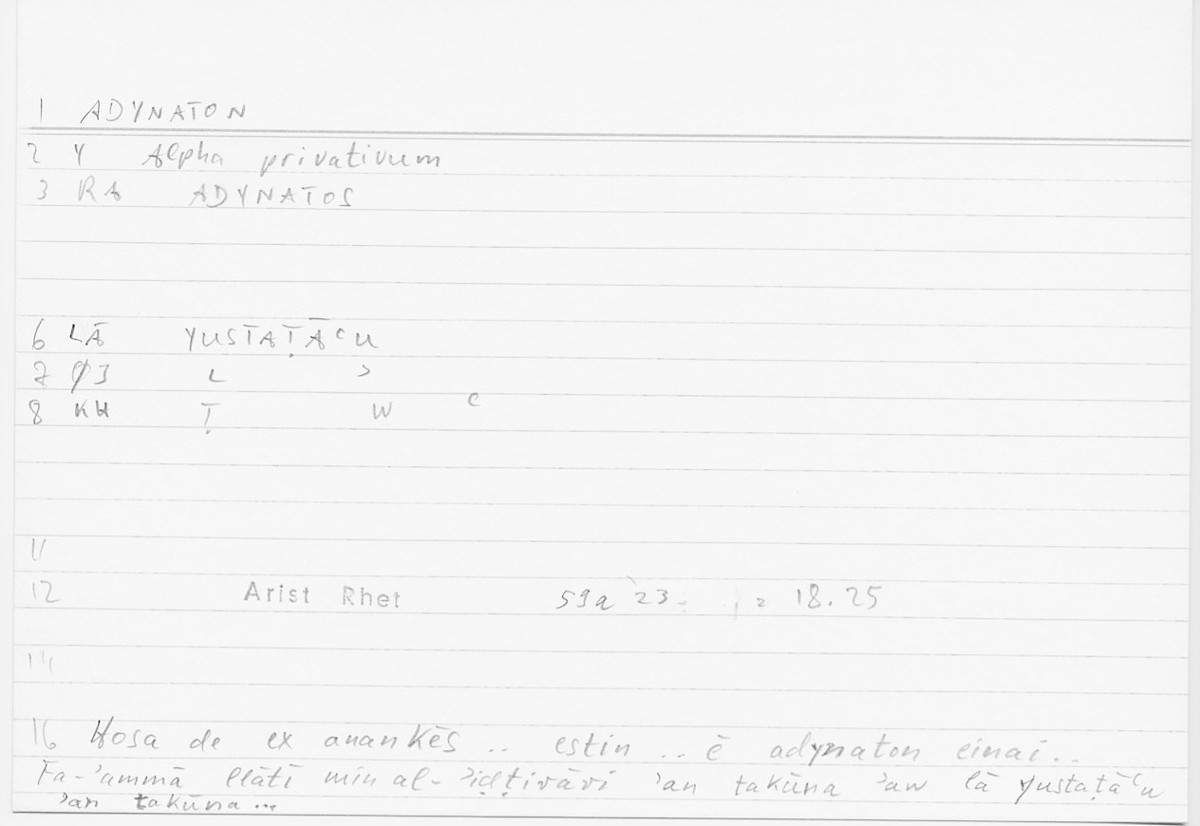 1 ADYNATON
2 Y Alpha privativum
3 RA ADYNATOS
6 LĀ YUSTAṬĀʿU
7 Ø3 L ʾ
8 KH Ṭ W ʿ
11
12 Arist Rhet 59a 23 = 18.25
14
16 Hosa de ex anankēs .. estin .. ē adynaton einai..
Fa-ʾammā llātī min al-ʾiḍṭirāri ʾan takūna ʾaw lā yustaṭāʿu
ʾan takūna...